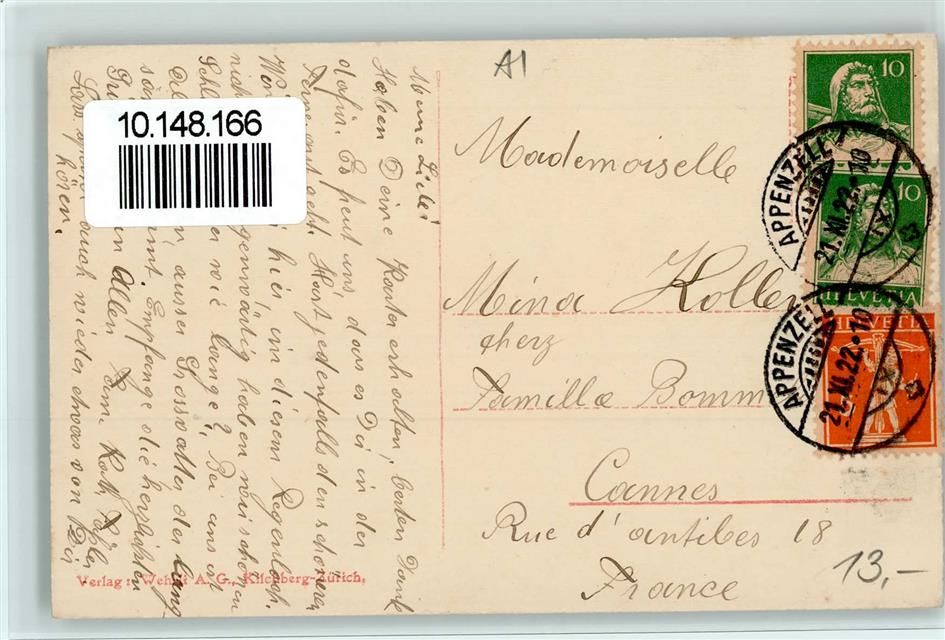 A1
10.148.166
Meine Liebe!
Haben Deine Karte erhalten, besten Dank
dafür. Es freut uns, dass es Dir in der
Ferne gefällt. Hast jedenfalls den schöneren
hier in diesem Regenloch.
gegenwärtig haben wir schönen
wie lange? Bei uns ist
ausser Grossvatter der lang
Empfange die herzlichsten
Allen
Lass auch wieder etwas von Dir
hören.
Mademoiselle
Mina Koller
cherz
Famille Bomm
Cannes
Rue d'antibes 18
France
10
10
HELVETIA
HELVETIA
APPENZELL
21.XI.22.-10
XI
APPENZELL
21.XI.22.-10
XI
13,-
Verlag: Wehrli A. G., Kilchberg-Zürich.